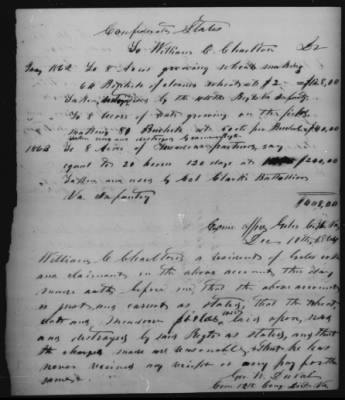 Confederate States
To William C. Charlton Dr
1862 To 8 Acres growing wheat making
64 Bushels of cleaned wheat at $2 - $128,00
Taken by the Regt Va Infantry
To 8 Acres of Oats growing on the field
making 80 Bushels at 50 cts per Bushel $40,00
1862 To 8 Acres of Meadow pasture, say
equal to 20 horses 120 days at $240,00
Taken and used by Col Clarks Battallion
Va Infantry
$408,00
Comrs office Giles C.H. Va
Dec 10th, 1864
William C. Charlton a resident of Giles Co
and claimant in the above account this day
made oath before me, that the above account
is just and correct as stated, that the wheat
oats and meadow fields, was used upon,
and destroyed by said Regt as stated, and that
the charges made are reasonable, & that he has
never received any receipt or any pay for the
same.
Geo. W. Duval
Com 12th Cong Dist Va